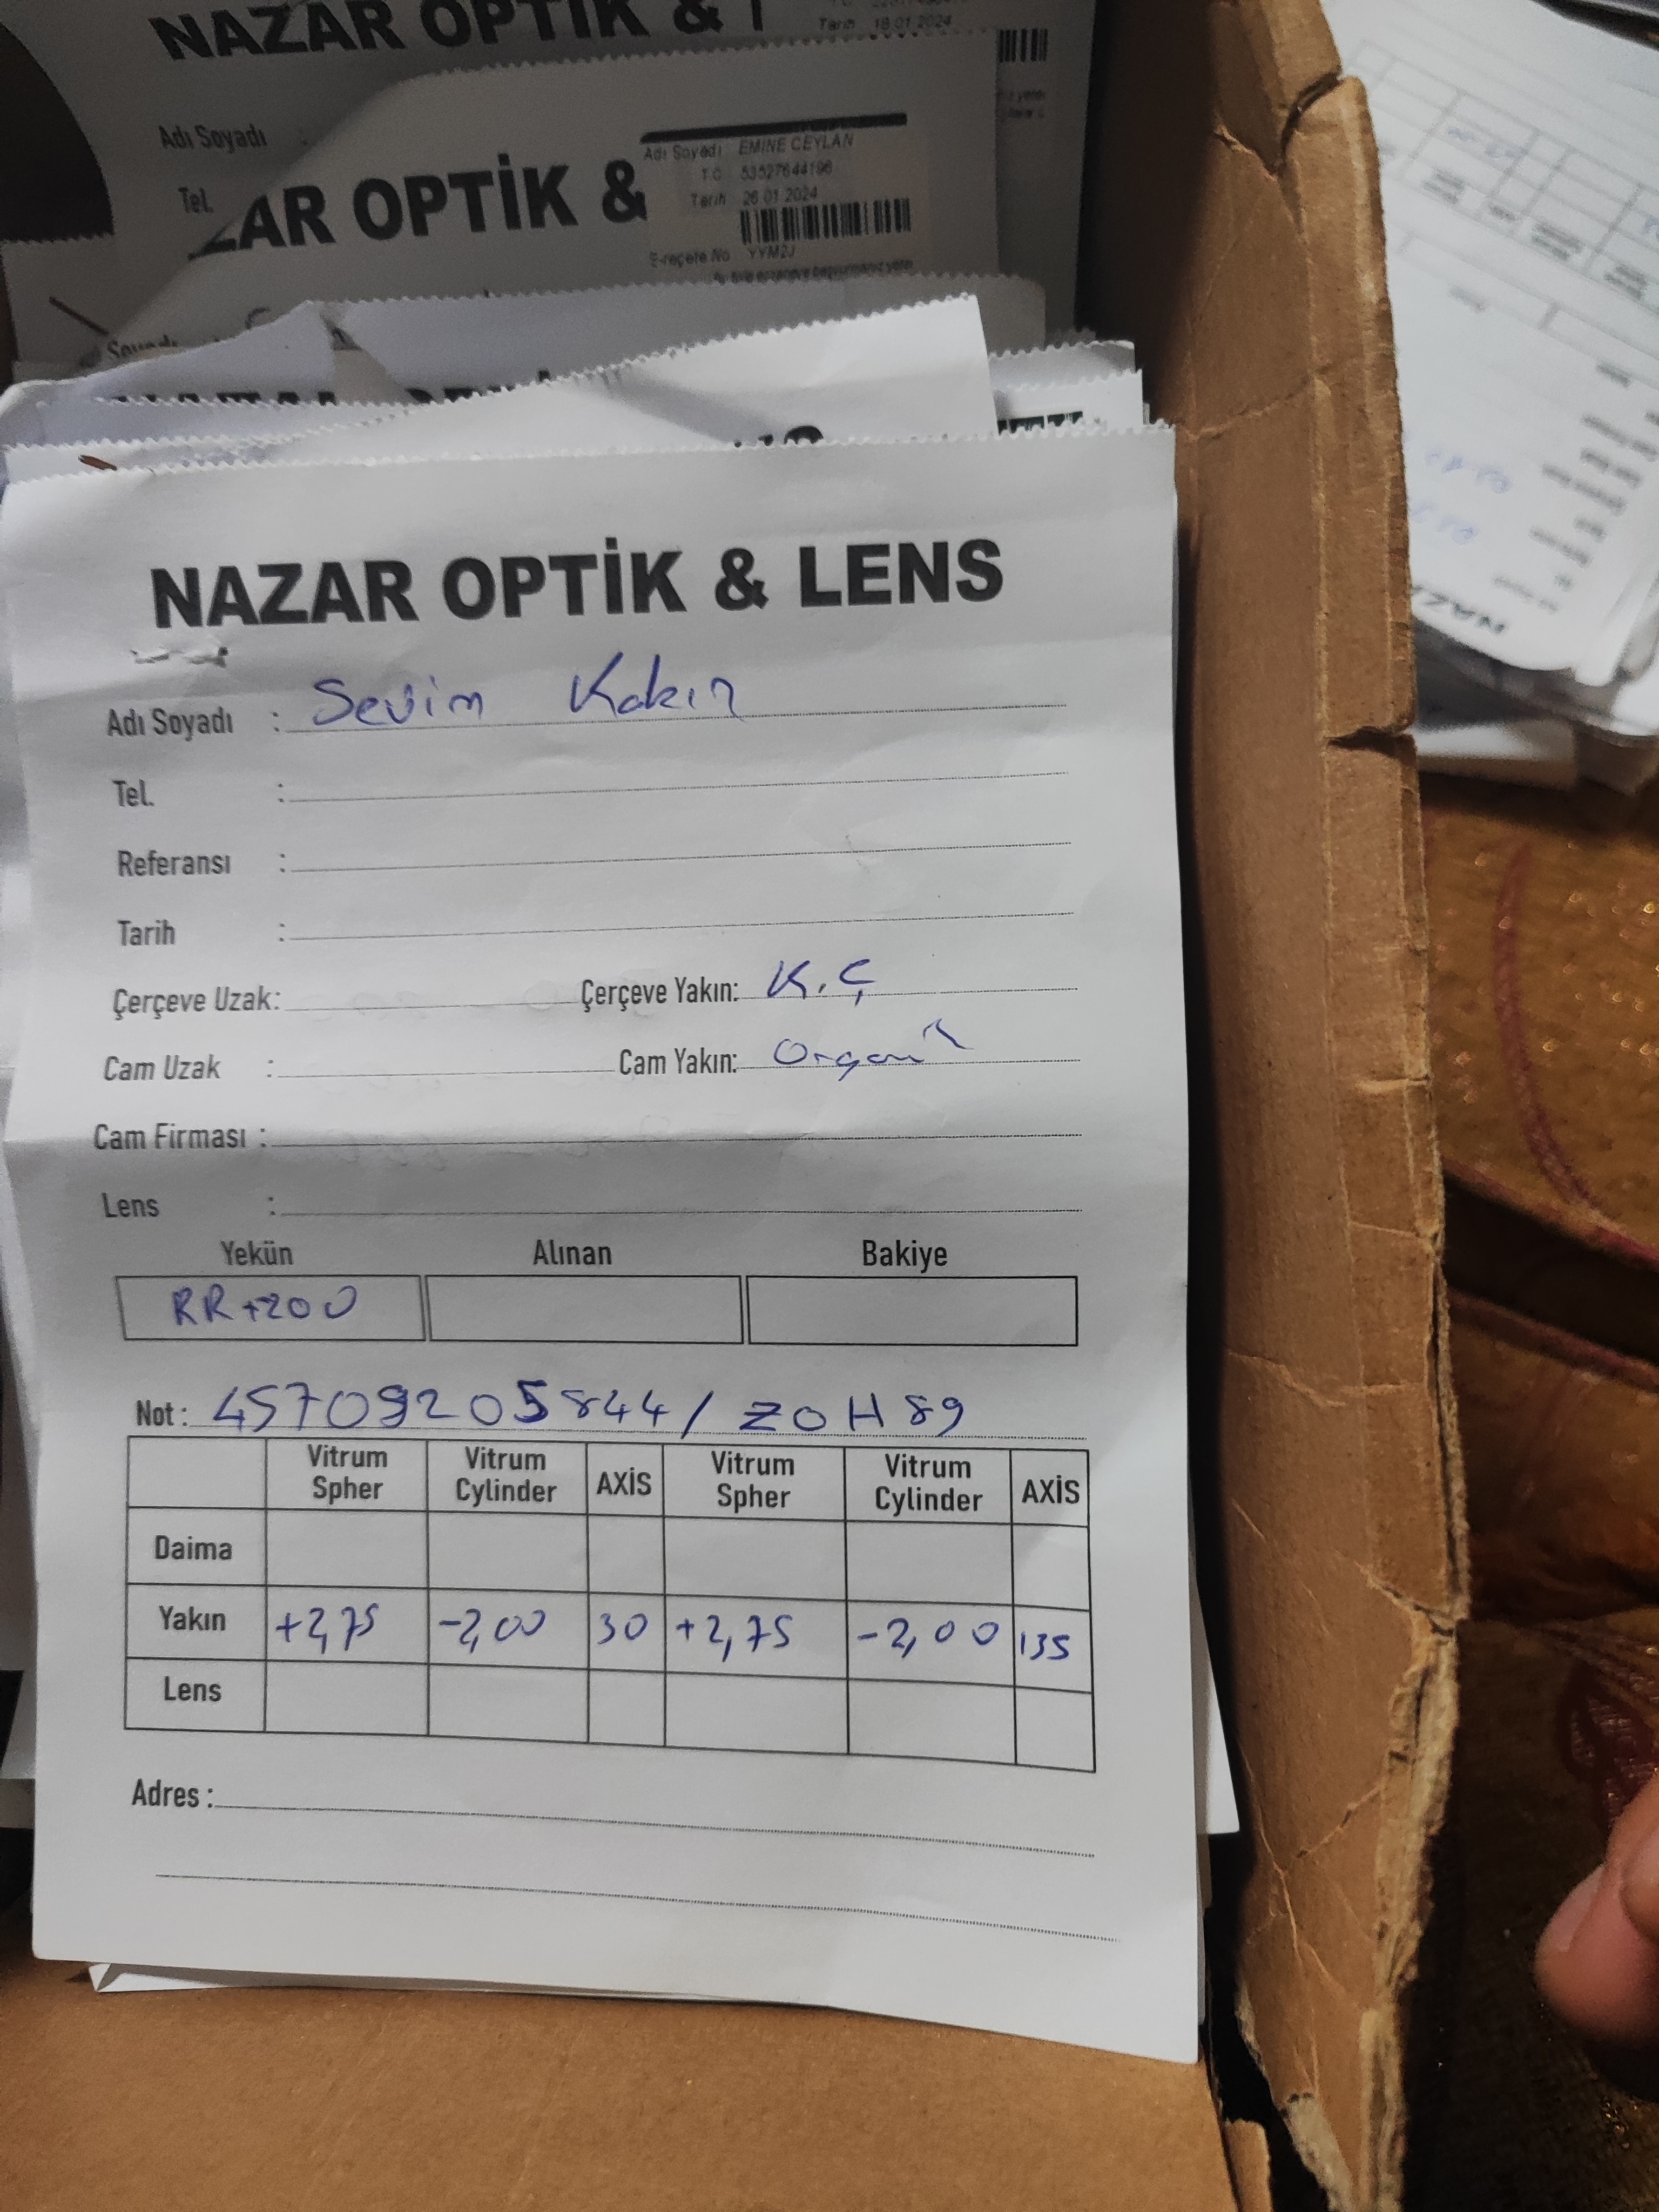 NAZAR OPTİK &
Tarih 18.01.2024
Adı Soyadı :
Tel.
AR OPTİK &
Adı Soyadı EMİNE CEYLAN
T.C. 53527644196
Tarih 26.01.2024
E-reçete No YYM2J
NAZAR OPTİK & LENS
Adı Soyadı : Sevim
Tel. :
Referansı :
Tarih :
Çerçeve Uzak: Çerçeve Yakın: K.Ç
Cam Uzak : Cam Yakın: Organik
Cam Firması :
Lens :
Yekün Alınan Bakiye
RR+200
Not : 45709205844 / ZOH89
Vitrum Spher Vitrum Cylinder AXİS Vitrum Spher Vitrum Cylinder AXİS
Daima
Yakın +2,75 -2,00 30 +2,75 -2,00 135
Lens
Adres :